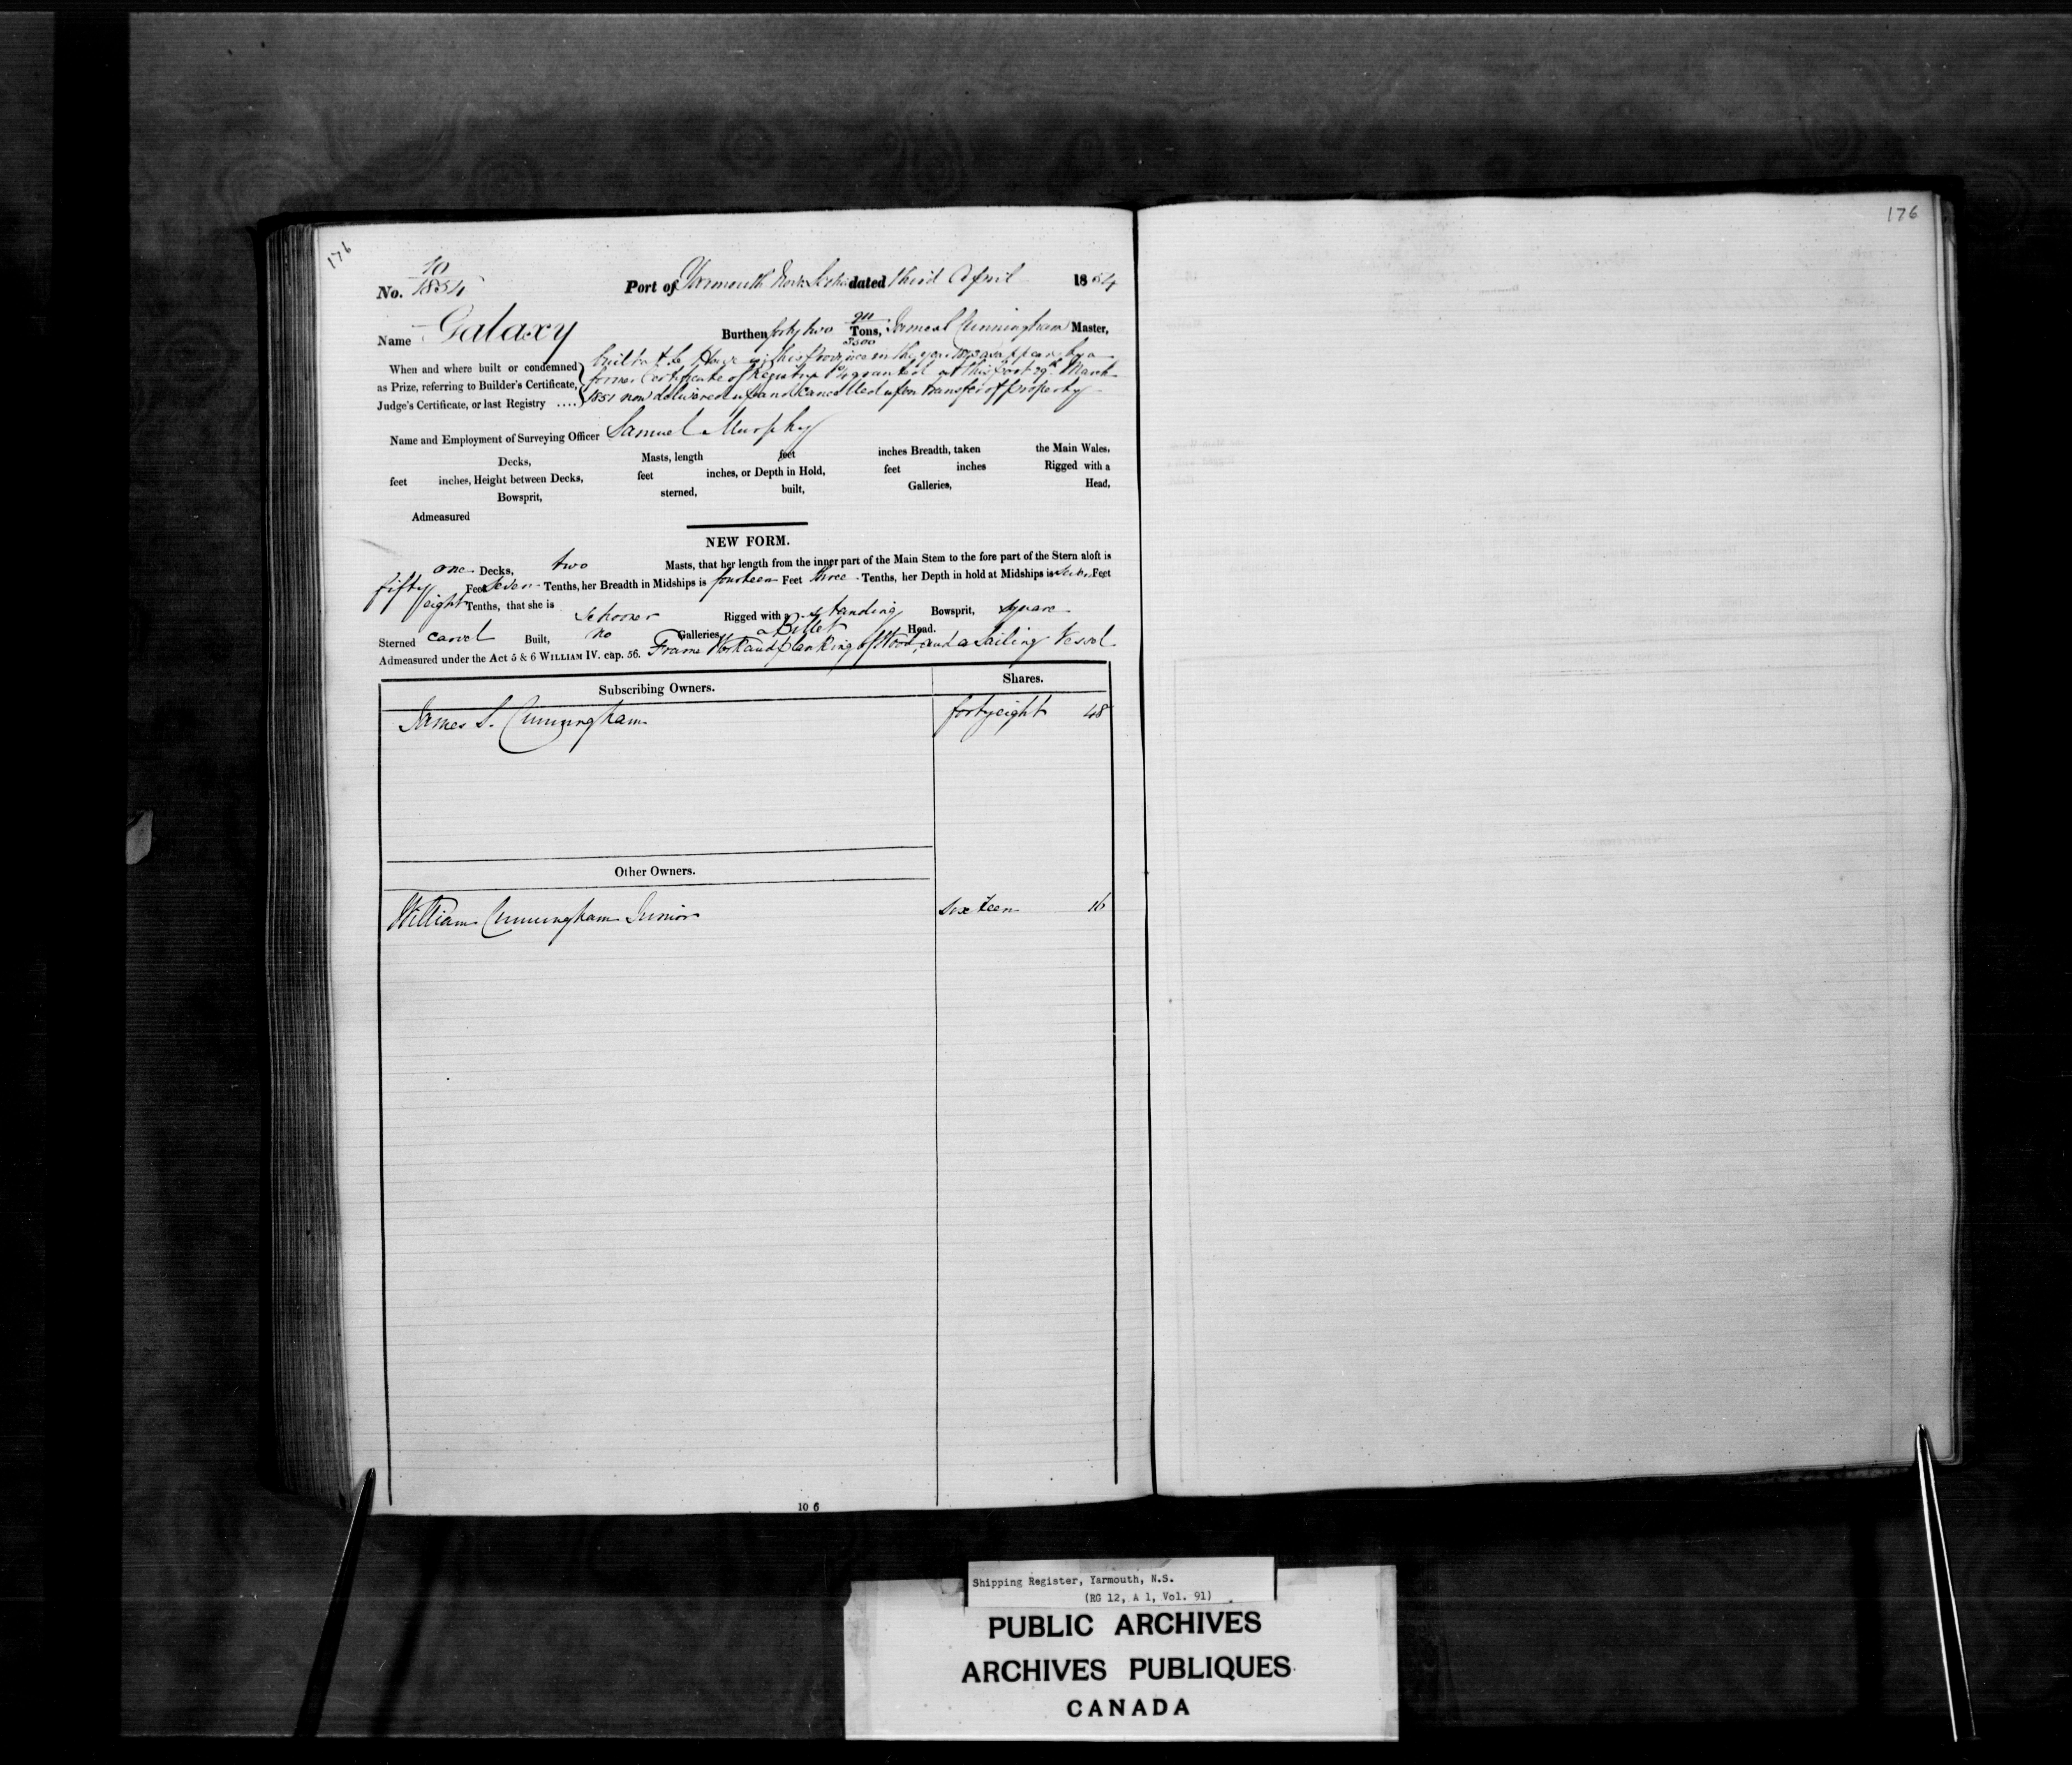 176
176
No. 10/1854 Port of Yarmouth Nova Scotia dated third April 1854
Name Galaxy Burthen forty two 911/3500 Tons, Samuel Cunningham Master,
When and where built or condemned as Prize, referring to Builder's Certificate, Judge's Certificate, or last Registry ....
built at in this Province in the year as appears by a
former Certificate of Registry granted at this port 29th March
1851 now delivered up and cancelled upon transfer of property
Name and Employment of Surveying Officer Samuel Murphy
Decks, Masts, length feet inches Breadth, taken the Main Wales,
feet inches, Height between Decks, feet inches, or Depth in Hold, feet inches Rigged with a
Bowsprit, sterned, built, Galleries, Head,
Admeasured
NEW FORM.
one Decks, two Masts, that her length from the inner part of the Main Stem to the fore part of the Stern aloft is
fifty Feet Seven Tenths, her Breadth in Midships is fourteen Feet three Tenths, her Depth in hold at Midships is Feet
eight Tenths, that she is Schooner Rigged with a standing Bowsprit, square
Sterned carvel Built, no Galleries, a Billet Head.
Admeasured under the Act 5 & 6 WILLIAM IV. cap. 56. Frame Work and planking of Wood, and a Sailing Vessel
Subscribing Owners. Shares.
James S. Cunningham forty eight 48
Other Owners.
William Cunningham Junior sixteen 16
10 6
Shipping Register, Yarmouth, N.S.
(RG 12, A 1, Vol. 91)
PUBLIC ARCHIVES
ARCHIVES PUBLIQUES
CANADA